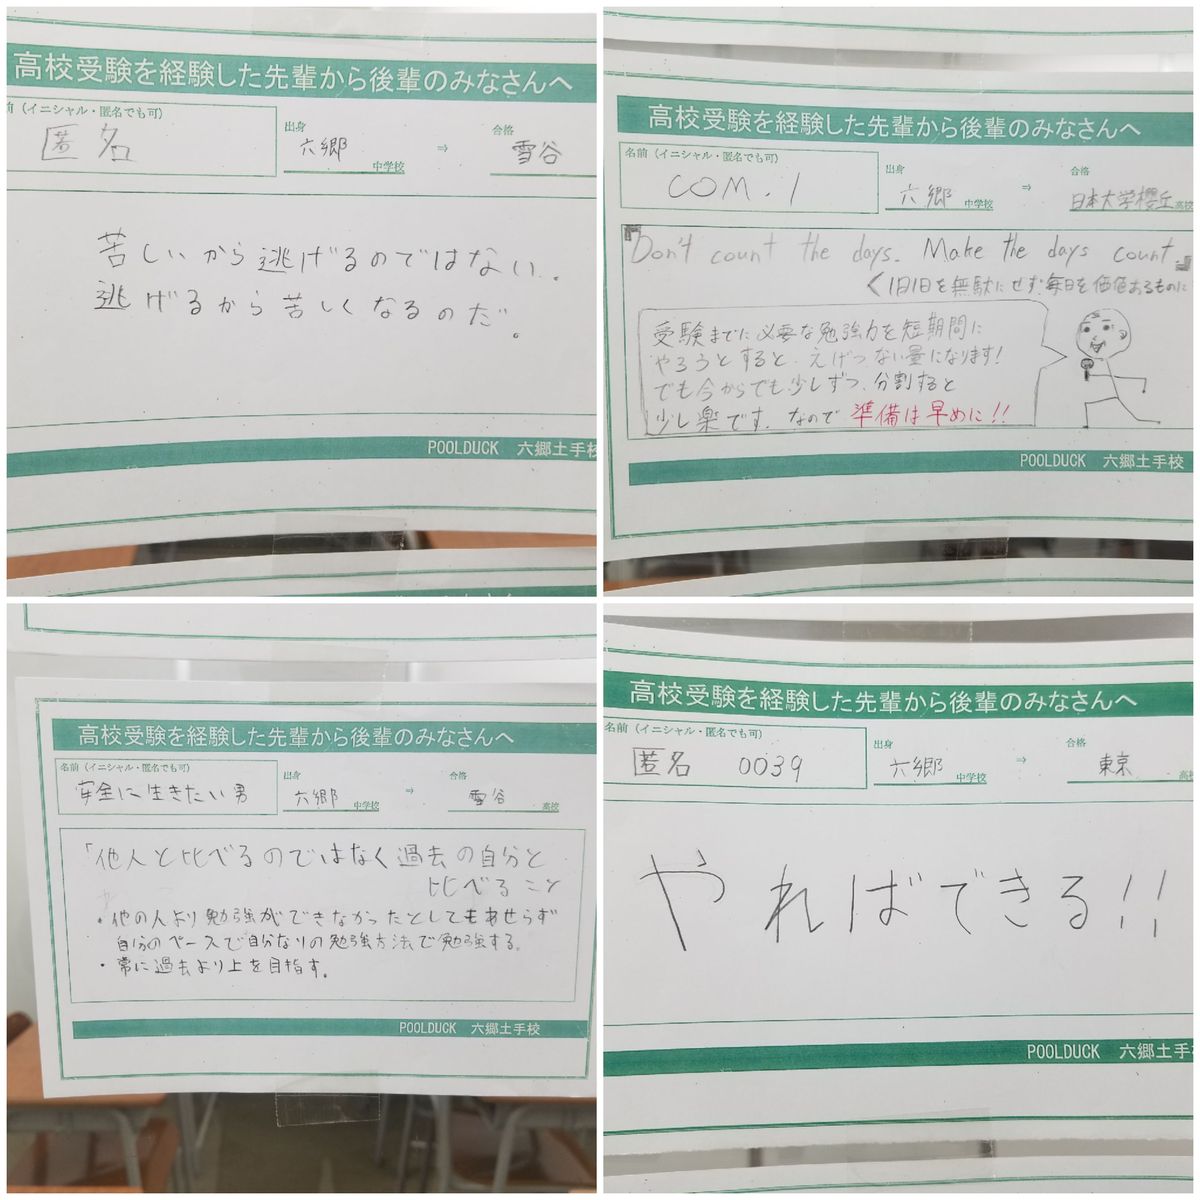 高校受験を経験した先輩から後輩のみなさんへ
前（イニシャル・匿名でも可）
匿名
出身
六郷 中学校
⇒
合格
雪谷
苦しいから逃げるのではない。
逃げるから苦しくなるのだ。
POOLDUCK 六郷土手校
高校受験を経験した先輩から後輩のみなさんへ
名前（イニシャル・匿名でも可）
COM.1
出身
六郷 中学校
⇒
合格
日本大学櫻丘 高校
『Don't count the days. Make the days count.』
く1日1日を無駄にせず毎日を価値あるものに
受験までに必要な勉強力を短期間に
やろうとすると、えげつない量になります!
でも今からでも少しずつ、分割すると
少し楽です。なので 準備は早めに!!
POOLDUCK 六郷土手校
高校受験を経験した先輩から後輩のみなさんへ
名前（イニシャル・匿名でも可）
安全に生きたい男
出身
六郷 中学校
⇒
合格
雪谷 高校
「他人と比べるのではなく過去の自分と
比べること
・他の人より勉強ができなかったとしてもあせらず
自分のペースで自分なりの勉強方法で勉強する。
・常に過去より上を目指す。
POOLDUCK 六郷土手校
高校受験を経験した先輩から後輩のみなさんへ
名前（イニシャル・匿名でも可）
匿名 0039
出身
六郷 中学校
⇒
合格
東京 高校
やればできる!!
POOLDUCK 六郷土手